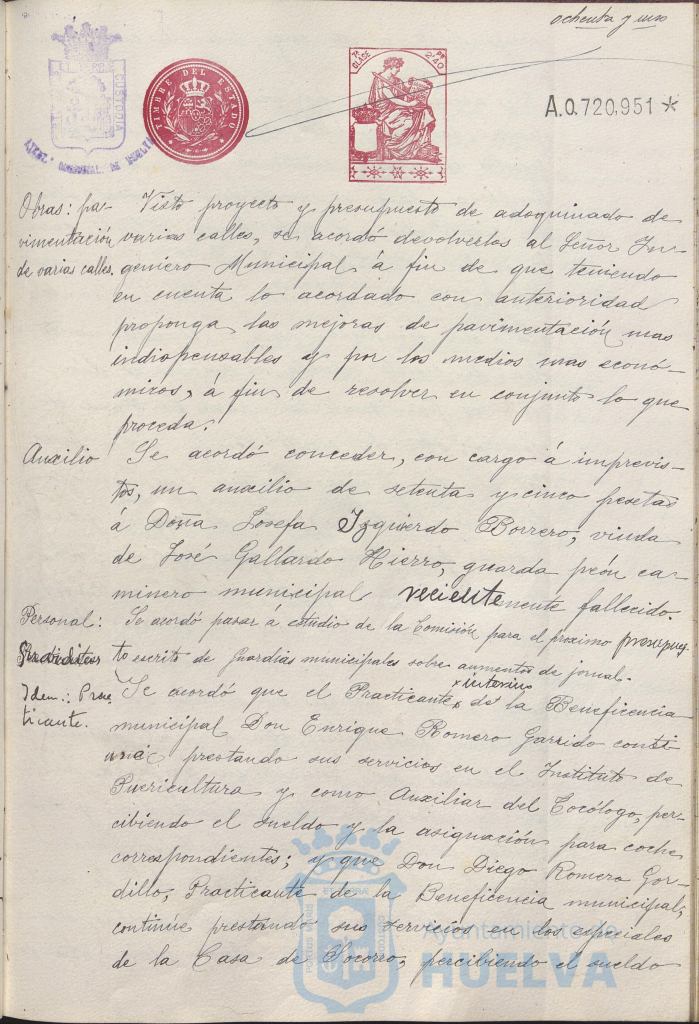 ochenta y uno
CUSTODIA
TIMBRE DEL ESTADO
7ª CLASE
2'40 PP
A.0.720,951 *
Obras: pa-
vimentación
de varias calles.
Visto proyecto y presupuesto de adoquinado de
varias calles, se acordó devolverlos al Señor In-
geniero Municipal á fin de que teniendo
en cuenta lo acordado con anterioridad
proponga las mejoras de pavimentación mas
indispensables y por los medios mas econó-
micos, á fin de resolver en conjunto lo que
proceda.
Auxilio
Se acordó conceder, con cargo á imprevis-
tos, un auxilio de setenta y cinco pesetas
á Doña Josefa Izquierdo Borrero, viuda
de José Gallardo Hierro, guarda peón ca-
minero municipal recientemente fallecido.
Personal:
Se acordó pasar á estudio de la Comisión para el próximo presupues-
to escrito de Guardias municipales sobre aumentos de jornal.
Idem.: Prac-
ticante.
Se acordó que el Practicante interino de la Beneficencia
municipal Don Enrique Romero Garrido conti
núe prestando sus servicios en el Instituto de
Puericultura y como Auxiliar del Tocólogo, per-
cibiendo el sueldo y la asignación para coche
correspondientes; y que Don Diego Romero Gor-
dillo, Practicante de la Beneficencia municipal,
continúe prestando sus servicios en los especiales
de la Casa de Socorro, percibiendo el sueldo
Ayuntamiento de
HUELVA